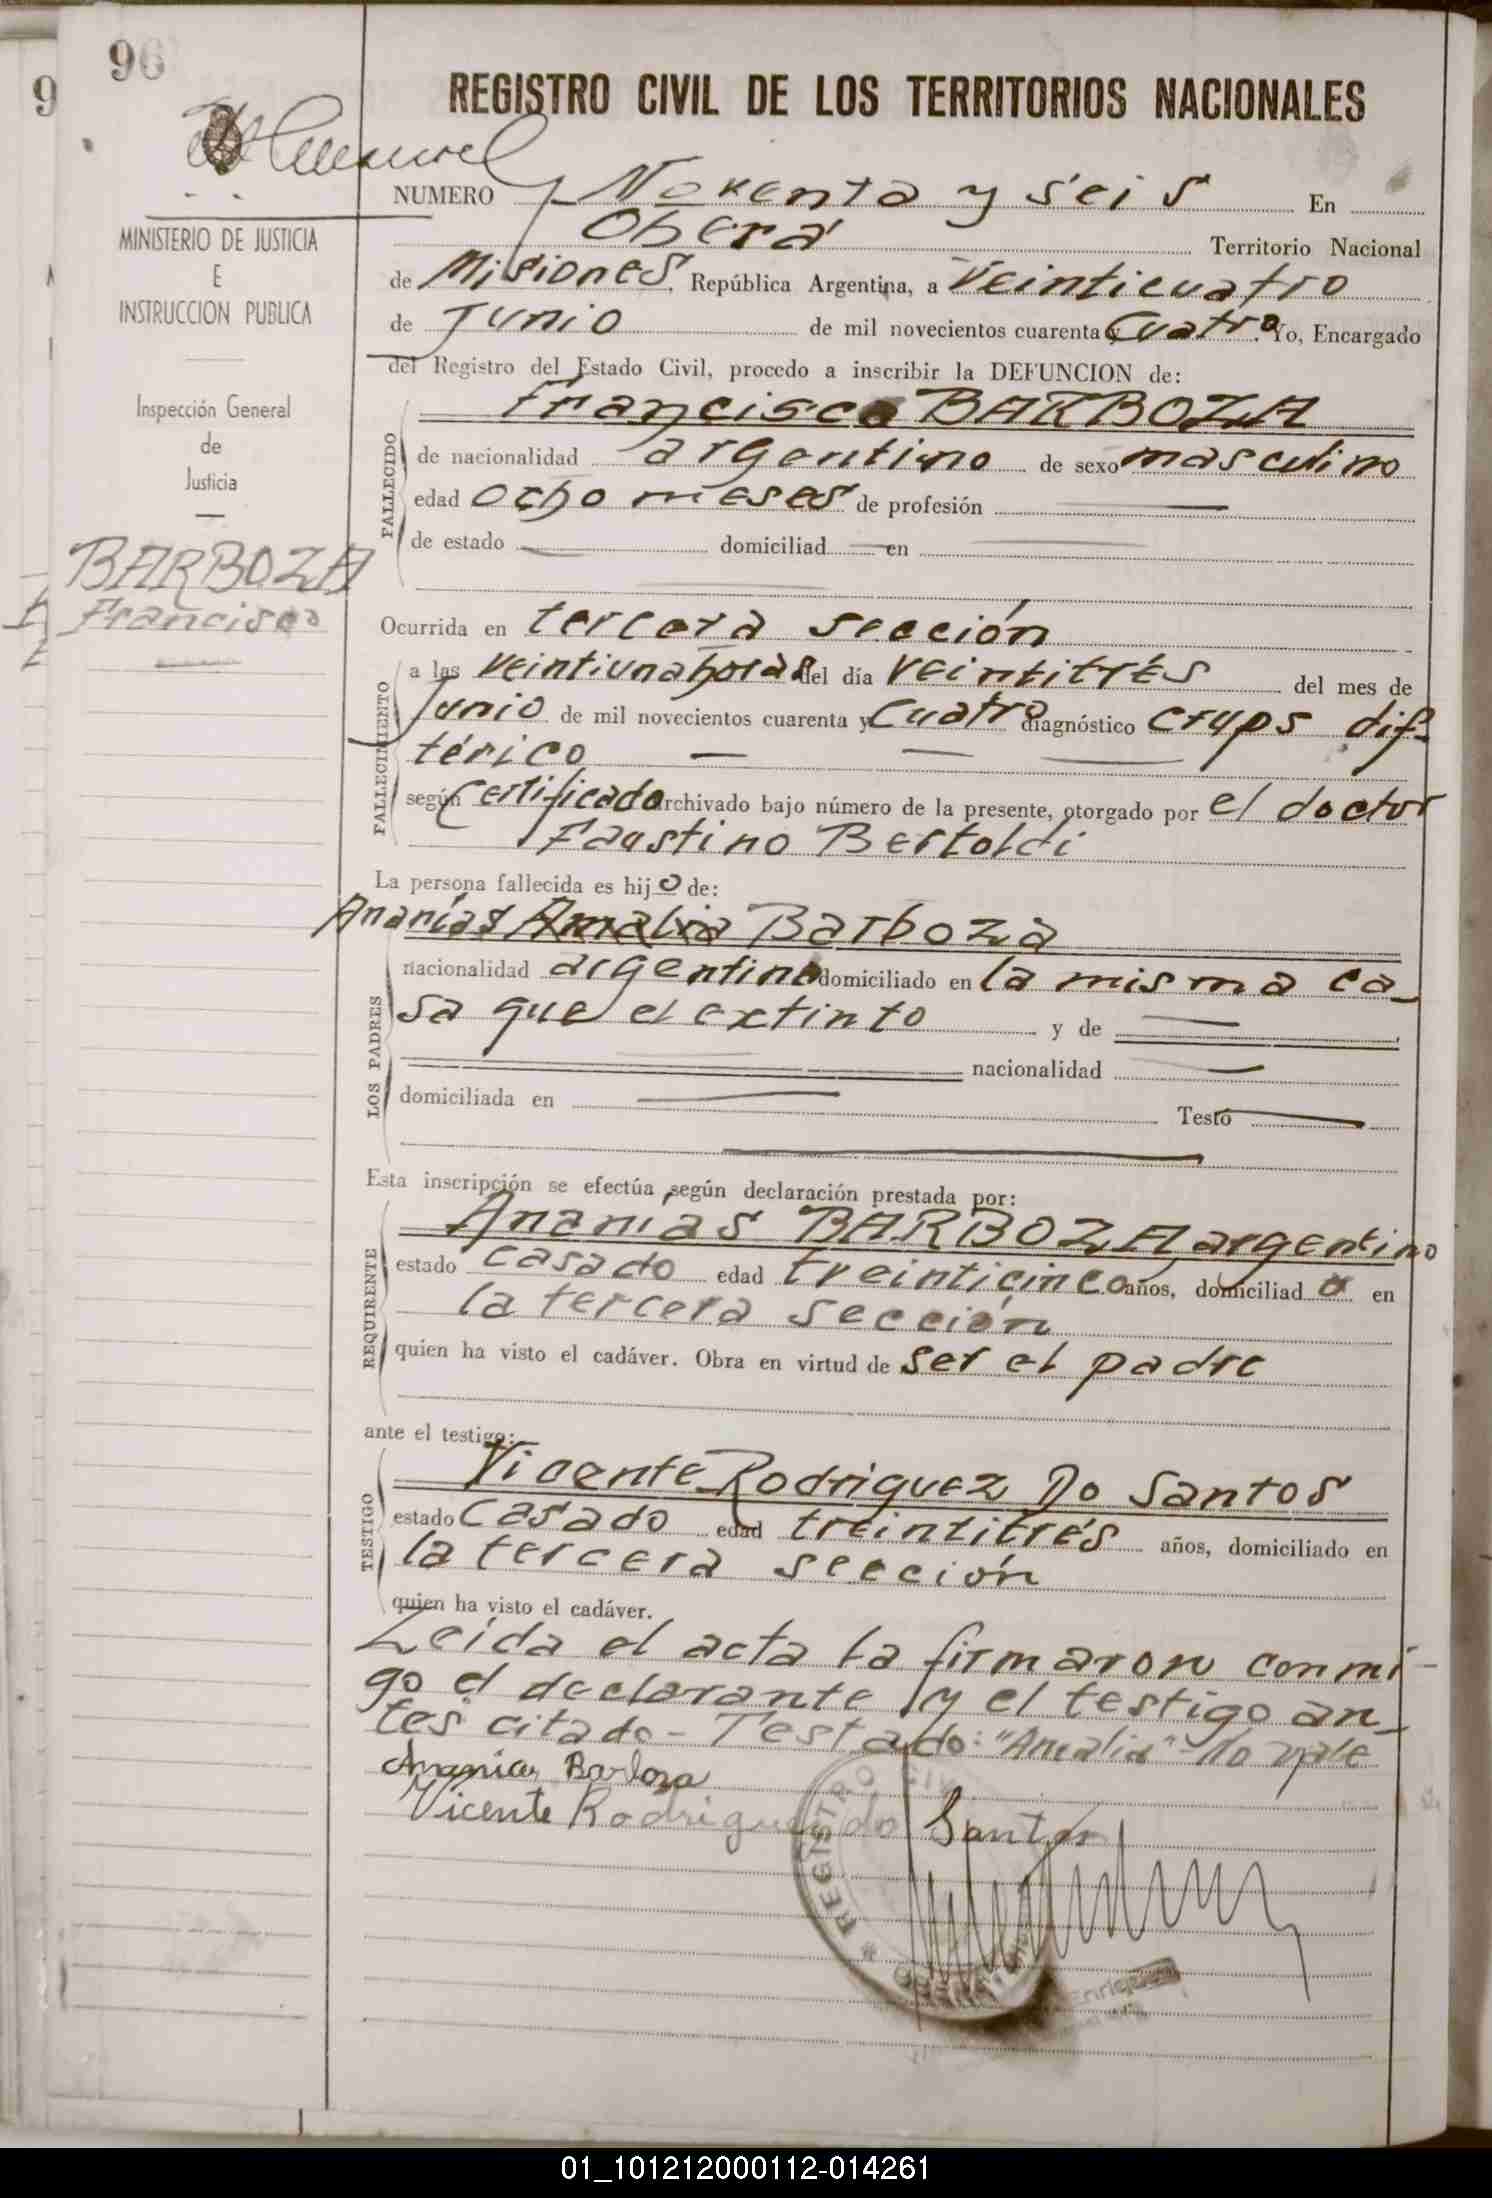 96
9
REGISTRO CIVIL DE LOS TERRITORIOS NACIONALES
NUMERO Noventa y seis En
Oberá Territorio Nacional
de Misiones, República Argentina, a veinticuatro
de Junio de mil novecientos cuarenta y cuatro. Yo, Encargado
del Registro del Estado Civil, procedo a inscribir la DEFUNCION de:
MINISTERIO DE JUSTICIA
E
INSTRUCCION PUBLICA
Inspección General
de
Justicia
BARBOZA
Francisco
FALLECIDO
Francisco BARBOZA
de nacionalidad argentino de sexo masculino
edad ocho meses de profesión —
de estado — domiciliad — en —
Ocurrida en tercera sección
FALLECIMIENTO
a las veintiuna horas del día veintitrés del mes de
Junio de mil novecientos cuarenta y cuatro diagnóstico crups dif-
térico —
según certificado archivado bajo número de la presente, otorgado por el doctor
Faustino Bertoldi
La persona fallecida es hijo de:
LOS PADRES
Ananías Amalia Barboza
nacionalidad argentino domiciliado en la misma ca-
sa que el extinto y de —
nacionalidad —
domiciliada en — Testó —
Esta inscripción se efectúa según declaración prestada por:
REQUIRENTE
Ananías BARBOZA argentino
estado casado edad treinticinco años, domiciliado en
la tercera sección
quien ha visto el cadáver. Obra en virtud de ser el padre
ante el testigo:
TESTIGO
Vicente Rodriguez Do Santos
estado casado edad treintitrés años, domiciliado en
la tercera sección
quien ha visto el cadáver.
Leída el acta la firmaron conmi-
go el declarante y el testigo an-
tes citado - Testado: "Amalia" - no vale
Ananias Barboza
Vicente Rodriguez do Santos
REGISTRO CIV
01_101212000112-014261